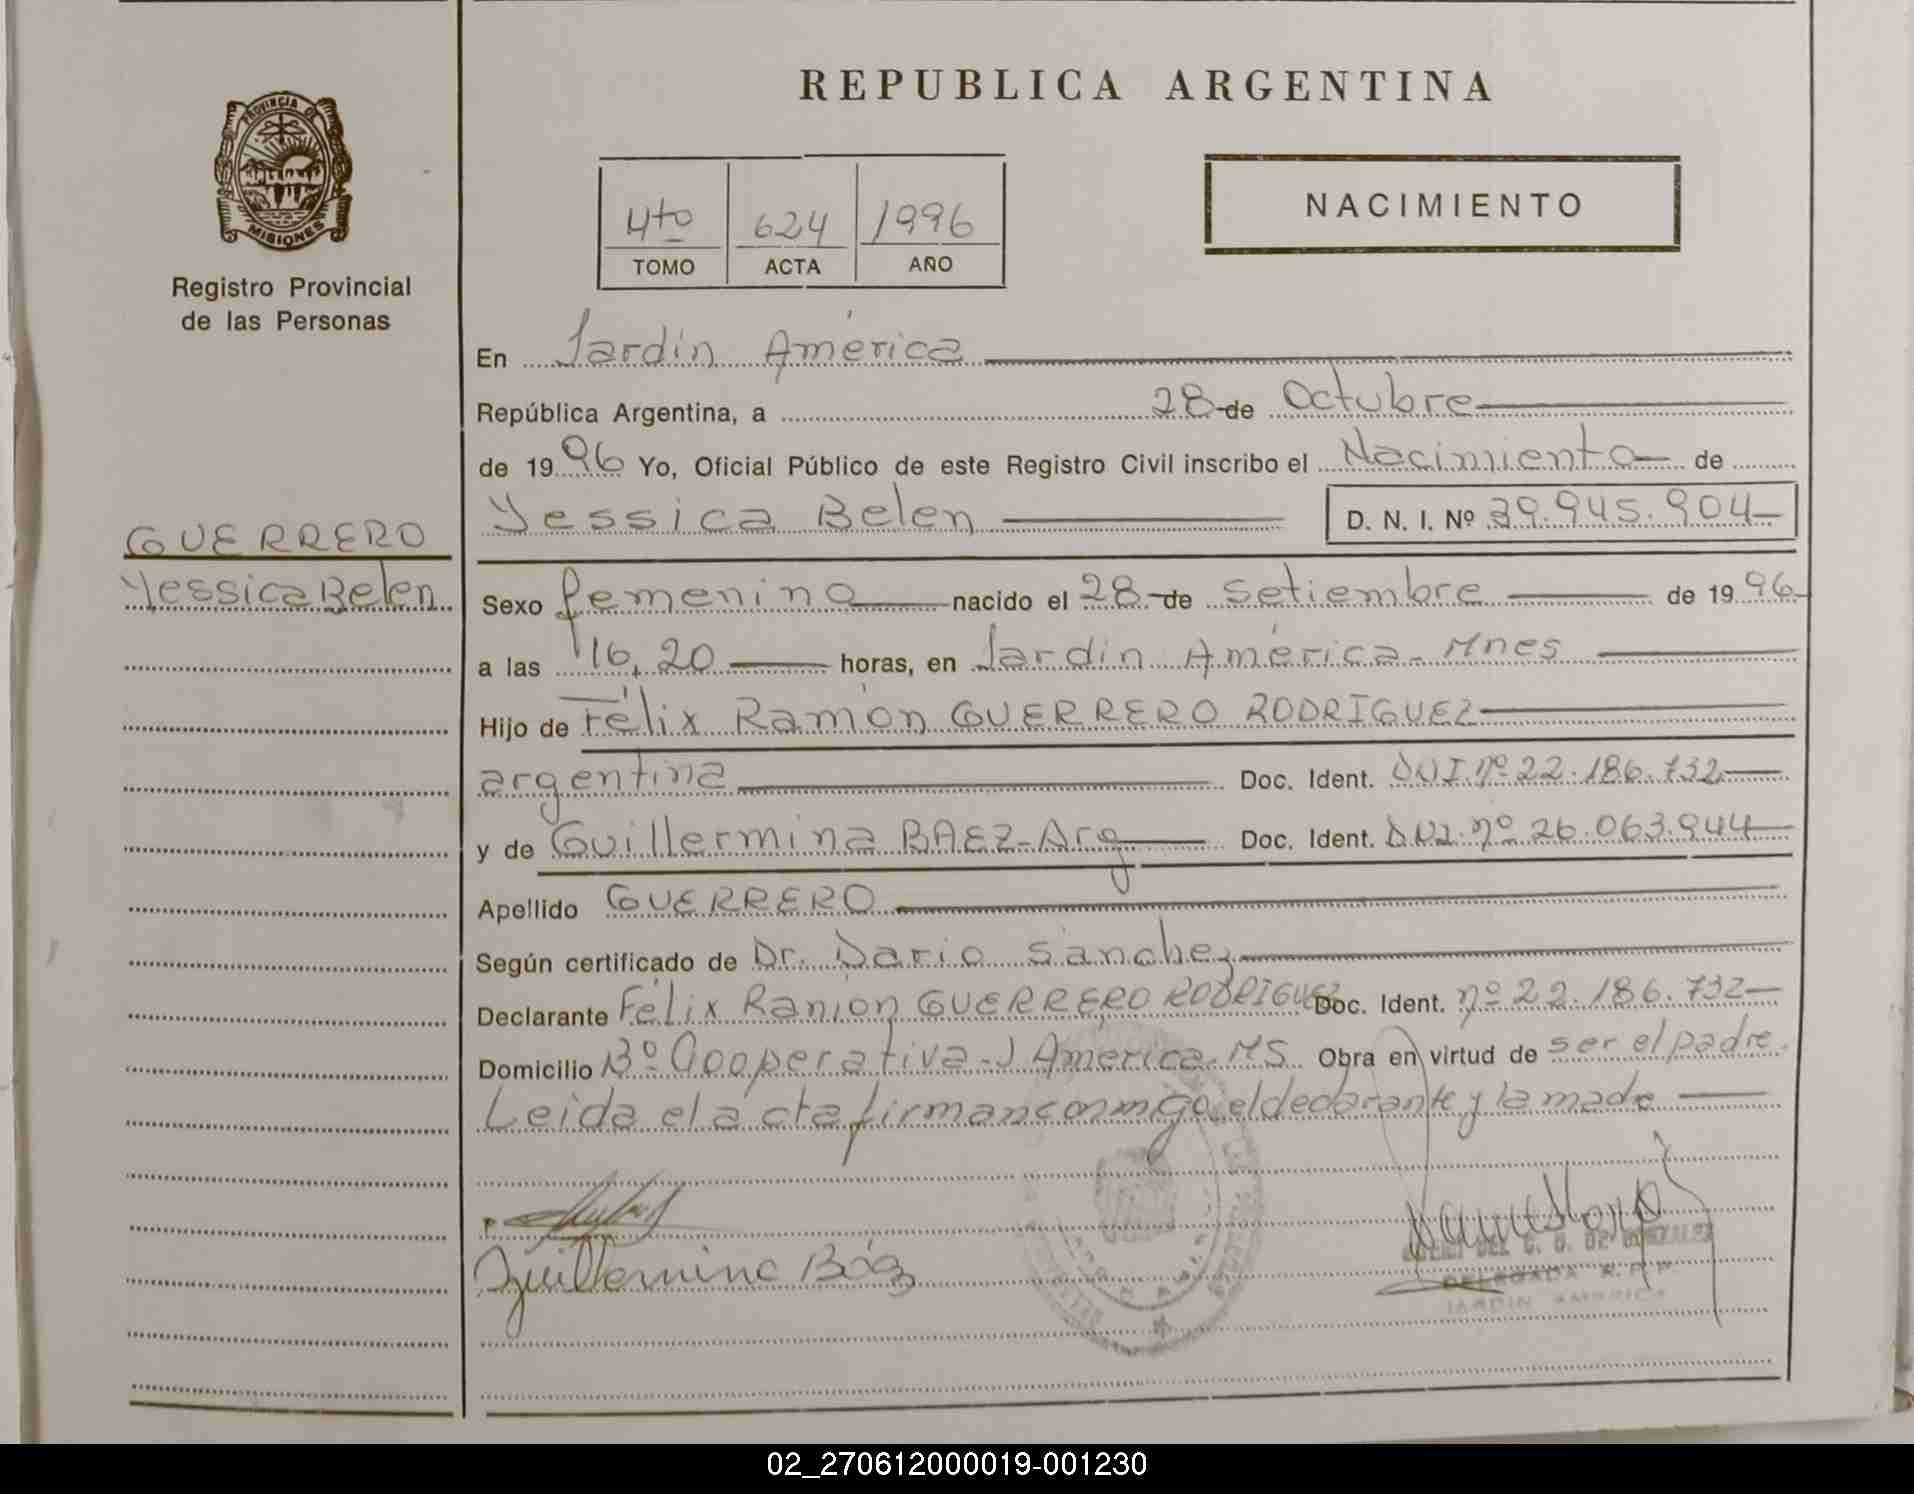 REPUBLICA ARGENTINA
PROVINCIA DE
MISIONES
Registro Provincial
de las Personas
4to 624 1996
TOMO ACTA AÑO
NACIMIENTO
En Jardín América
República Argentina, a 28 de Octubre
de 1996 Yo, Oficial Público de este Registro Civil inscribo el Nacimiento de
Yessica Belen D. N. I. Nº 39.945.904
GUERRERO
Yessica Belen
Sexo femenino nacido el 28 de setiembre de 1996
a las 16,20 horas, en Jardín América - Mnes
Hijo de Félix Ramón GUERRERO RODRIGUEZ
argentina Doc. Ident. DNI nº 22.186.732
y de Guillermina BAEZ - Arg Doc. Ident. DNI nº 26.063.944
Apellido GUERRERO
Según certificado de Dr. Dario Sanchez
Declarante Félix Ramón GUERRERO RODRIGUEZ Doc. Ident. nº 22.186.732
Domicilio Bº Cooperativa - J América. MS Obra en virtud de ser el padre.
Leida el acta firman conmigo el declarante y la madre
Guillermina Báez
DEL C. G. DE GONZALEZ
DELEGADA R.P.P.
JARDIN AMERICA
02_270612000019-001230